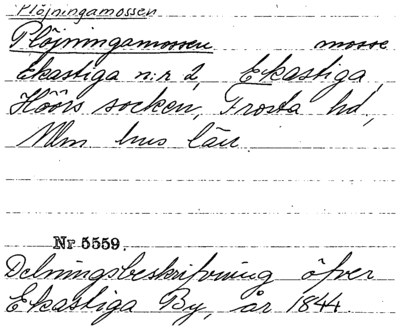 Plöjningamossen
Plöjningamossen mosse
Ekastiga n:r 2, Ekastiga,
Höörs socken, Frosta hd,
Mlm hus län
Nr 5559.
Delningsbeskrifvning öfver
Ekastiga By, år 1844.